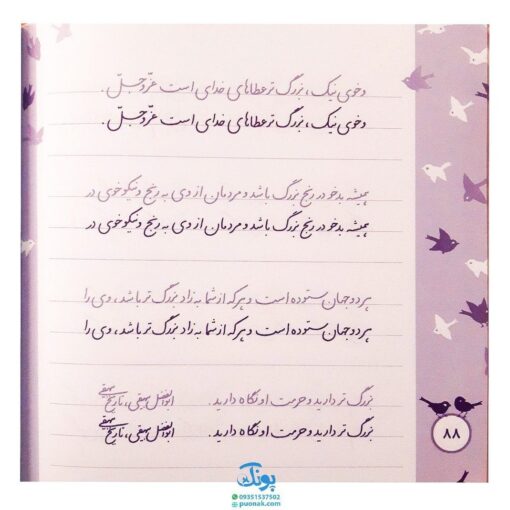 و خوی نیک، بزرگ‌تر عطاهای خدای است عزّ و جلّ.
و خوی نیک، بزرگ‌تر عطاهای خدای است عزّ و جلّ.
همیشه بدخو در رنج بزرگ باشد و مردمان از وی به رنج و نیکوخوی در
همیشه بدخو در رنج بزرگ باشد و مردمان از وی به رنج و نیکوخوی در
هر دو جهان ستوده است و هر که از شما به زاد بزرگ‌تر باشد، وی را
هر دو جهان ستوده است و هر که از شما به زاد بزرگ‌تر باشد، وی را
بزرگ‌تر دارید و حرمت او نگاه دارید. ابوالفضل بیهقی، تاریخ بیهقی
بزرگ‌تر دارید و حرمت او نگاه دارید. ابوالفضل بیهقی، تاریخ بیهقی
۸۸
پونک
09351537502
puonak.com